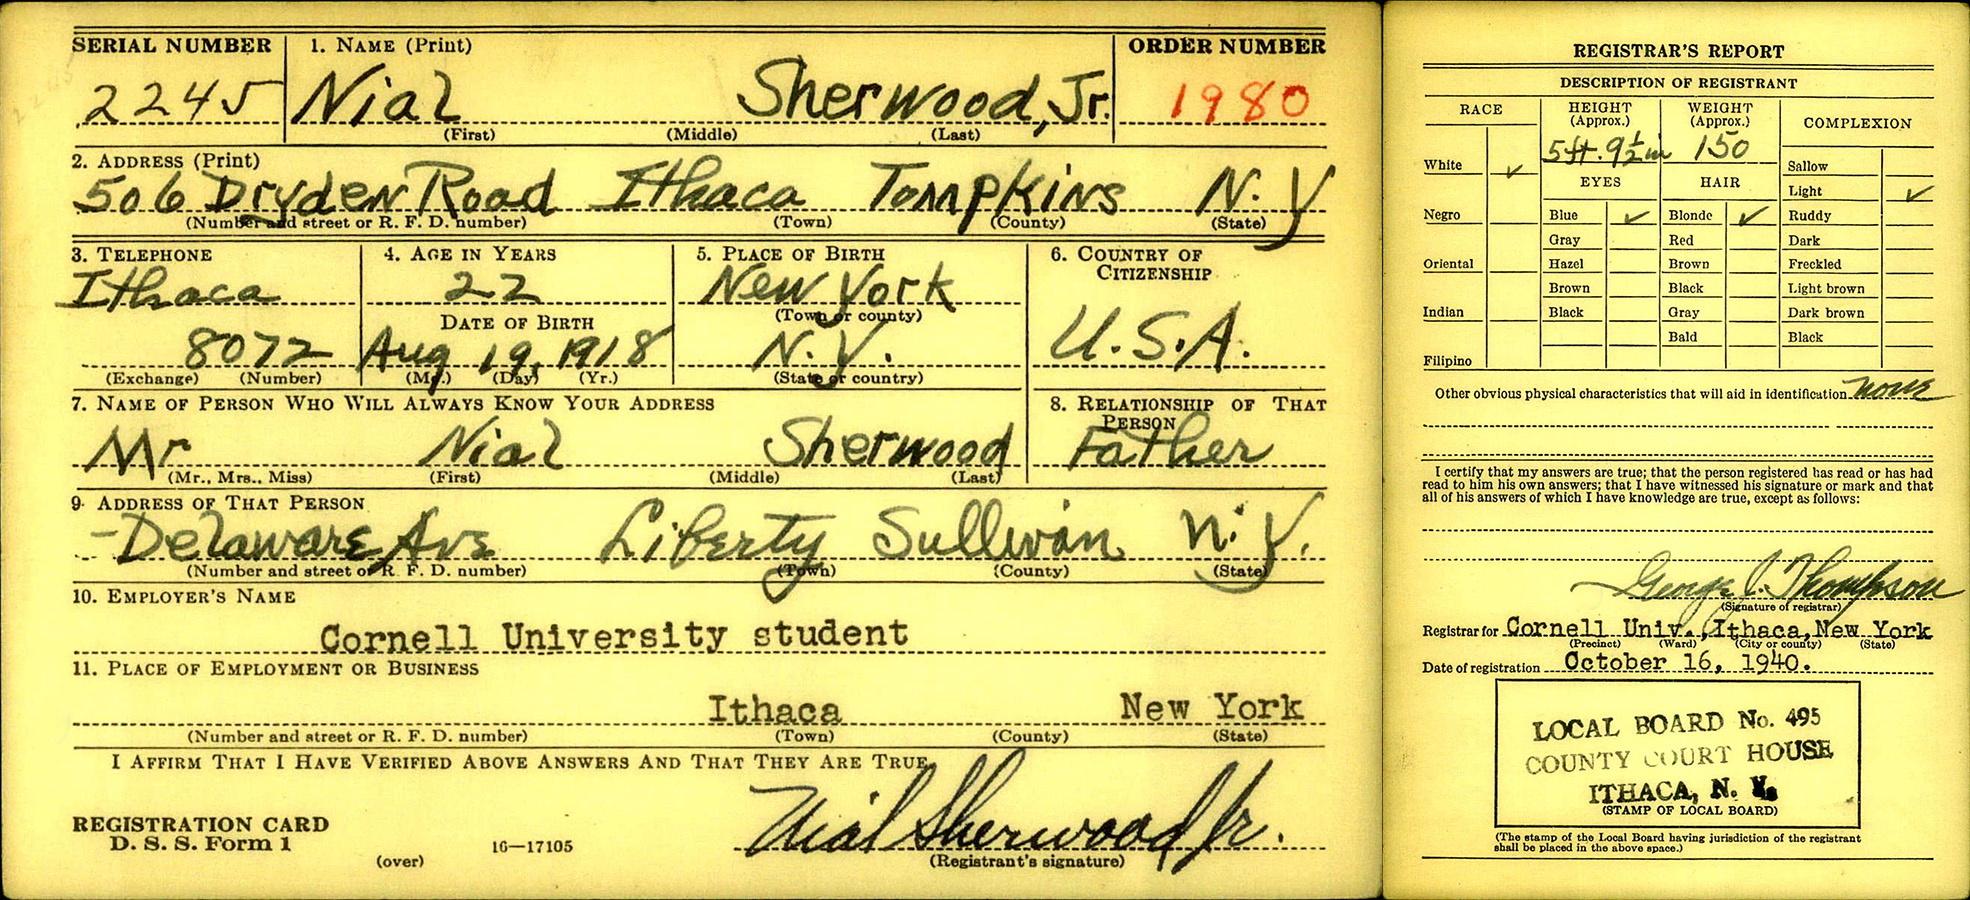 SERIAL NUMBER 1. NAME (Print) ORDER NUMBER
2245 Nial Sherwood, Jr. 1980
(First) (Middle) (Last)
2. ADDRESS (Print)
506 Dryden Road Ithaca Tompkins N.Y
(Number and street or R. F. D. number) (Town) (County) (State)
3. TELEPHONE 4. AGE IN YEARS 5. PLACE OF BIRTH 6. COUNTRY OF CITIZENSHIP
Ithaca 22 New York
DATE OF BIRTH (Town or county) U.S.A.
8072 Aug 19, 1918 N.Y.
(Exchange) (Number) (Mo.) (Day) (Yr.) (State or country)
7. NAME OF PERSON WHO WILL ALWAYS KNOW YOUR ADDRESS 8. RELATIONSHIP OF THAT PERSON
Mr Nial Sherwood Father
(Mr., Mrs., Miss) (First) (Middle) (Last)
9. ADDRESS OF THAT PERSON
- Delaware Ave Liberty Sullivan N.Y.
(Number and street or R. F. D. number) (Town) (County) (State)
10. EMPLOYER'S NAME
Cornell University student
11. PLACE OF EMPLOYMENT OR BUSINESS
Ithaca New York
(Number and street or R. F. D. number) (Town) (County) (State)
I AFFIRM THAT I HAVE VERIFIED ABOVE ANSWERS AND THAT THEY ARE TRUE.
REGISTRATION CARD
D. S. S. Form 1 16—17105 Nial Sherwood Jr.
(over) (Registrant's signature)
REGISTRAR'S REPORT
DESCRIPTION OF REGISTRANT
RACE HEIGHT (Approx.) WEIGHT (Approx.) COMPLEXION
5 ft. 9½ in 150
White ✓ Sallow
EYES HAIR Light ✓
Negro Blue ✓ Blonde ✓ Ruddy
Gray Red Dark
Oriental Hazel Brown Freckled
Brown Black Light brown
Indian Black Gray Dark brown
Bald Black
Filipino
Other obvious physical characteristics that will aid in identification none
I certify that my answers are true; that the person registered has read or has had
read to him his own answers; that I have witnessed his signature or mark and that
all of his answers of which I have knowledge are true, except as follows:
George J. Thompson
(Signature of registrar)
Registrar for Cornell Univ., Ithaca, New York
(Precinct) (Ward) (City or county) (State)
Date of registration October 16, 1940.
LOCAL BOARD No. 495
COUNTY COURT HOUSE
ITHACA, N. Y.
(STAMP OF LOCAL BOARD)
(The stamp of the Local Board having jurisdiction of the registrant
shall be placed in the above space.)